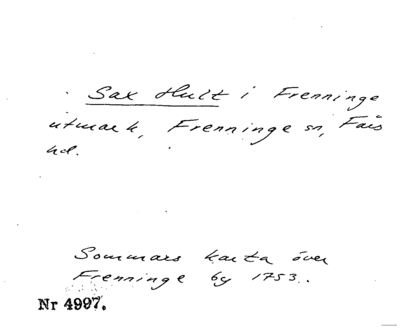 Sax Hult i Frenninge
utmark, Frenninge sn, Färs
hd.
Sommars karta över
Frenninge by 1753.
Nr 4997.